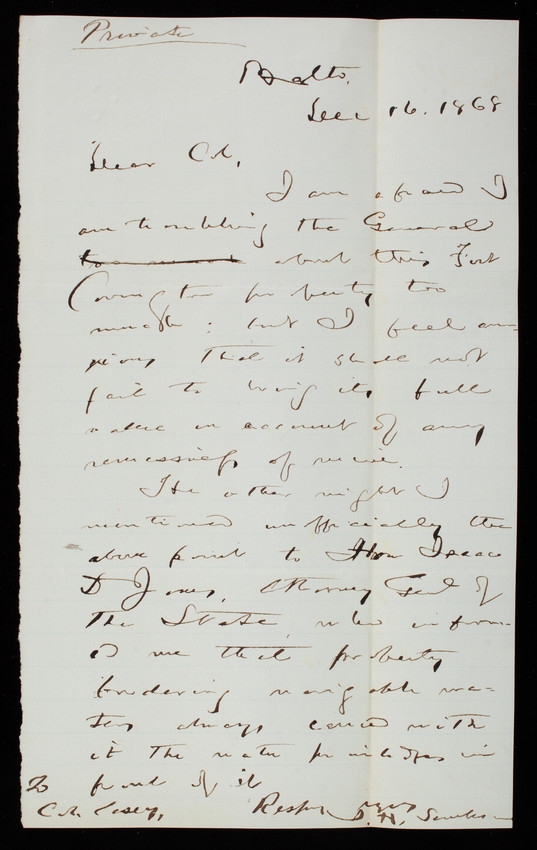 Private
Balto.
Dec 16. 1868
Dear Col,
I am afraid I
am troubling the General
about this Fort
Covington property too
much; but I feel an-
xious that it shall not
fail to bring its full
value on account of any
remissness of mine.
The other night I
mentioned unofficially the
above point to Hon Isaac
D Jones, Attorney Genl of
the State, who inform-
ed me that property
bordering navigable wa-
ters always carried with
it the water privileges in
front of it
To
Col. Casey,
Respy yours